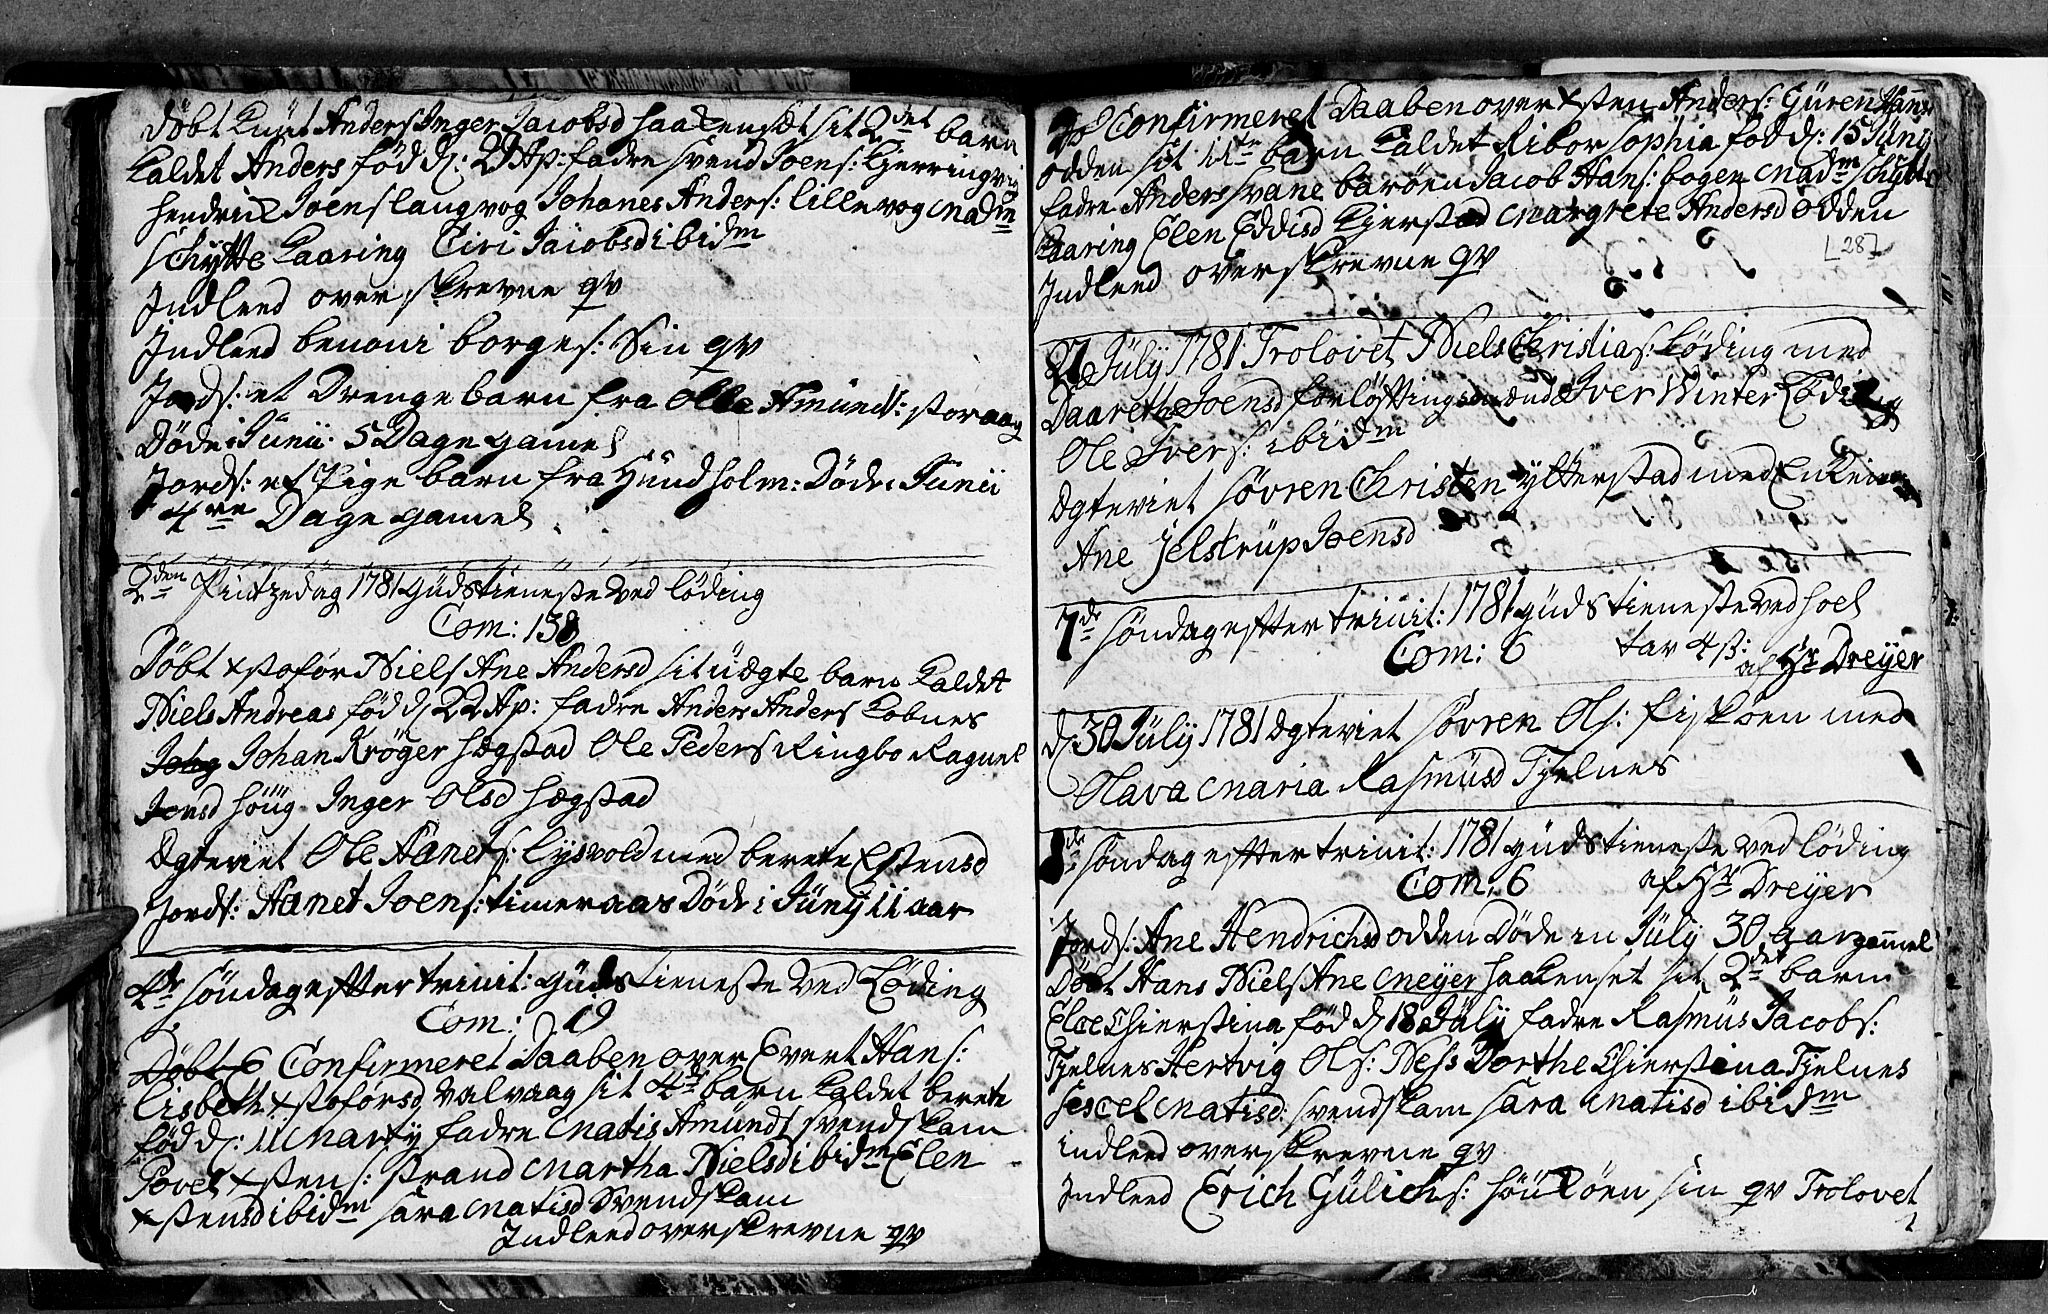 Døbt Knut Anders Inger Jacobsd haakensæt sit 2det barn
kaldet Anders fød d: 29 Ap: fadre Svend Joens: Kjerringvig
hendrik Joens langvog Johanes Anders: lillevog Madm
schytte kaaring Eiri Jacobsd ibidm
Indleed over skrevne qv
Indleed benoni borges: Sin qv
Jords: et Drenge barn fra Olle Amunds: storaag
Døde i Junii 5 Dage gamel
Jords: et Pige barn fra Hundholm: Døde i Junii
4re Dage gamel
2den Pintzedag 1781 Gudstieneste ved løding
Com: 138
Døbt xstofør Niels Ane Andersd sit uægte barn kaldet
Niels Andreas fød d 22 Ap: fadre Anders Anders kobnes
Johan Krøger hægstad Ole Peders Ringbo Ragnel
Jonsd høug Inger Olsd hægstad
Ægteviet Ole Hanets: lysvold med berete Estensd
Jords: Hanet Joens: timeraas Døde i Juny 11 aar
4de søndag efter trinit: gudstieneste ved Løding
Com: 19
Døbt E Confirmeret Daaben over Evert Hans:
lisbeth xstoførsd valvaag sit 4de barn kaldet berete
fød d: 11 Marty fadre Matis Amunds svendskam
Povel xstens: strand Martha Nielsd ibidm Elen
xstensd ibidm sara Matisd svendskam
Indleed overskrevne qv
Confirmeret Daaben over xsten Anders: Guren Hans
odden sit 11te barn kaldet Ribor sophia fød d: 15 Juny
fadre Anders svane barøen Jacob Hans: bogen Madm schytte
kaaring Elen Eddisd kjerstad Margrete Andersd odden
[287]
Indleed overskrevne qv
27 July 1781 Trolovet Niels Christias: Løding med
Daarethe Joensd forløftingsmænd Iver Winter Løding
Ole Ivers: ibidm
Ægteviet søvren Christen ytterstad med Enkeing
Ane Jelstrup Joensd
7de søndag efter trinit: 1781 gudstieneste ved hoel
Com: 6 tav 4 ß: af Hr Dreyer
d 30 July 1781 Ægteviet søvren Ols: fiskøen med
Olava Maria Rasmusd Tjelnes
8de søndag efter trinit: 1781 gudstieneste ved løding
Com: 6 af Hr Dreyer
Jords: Ane Hendrichsd odden Døde in July 30 Aar gammel
Døbt Hans Niels Ane Meyer haakenset sit 2det barn
Elce Chierstina fød d 18 July fadre Rasmus Jacobs:
Tjelnes Hertvig Ols: Ness Dorthe Chierstina Tjelnes
sescel Matisd: svendskam sara Matisd ibidm
indleed overskrevne qv
Indleed Erich Gulichs: høukøen sin qv Trolovet